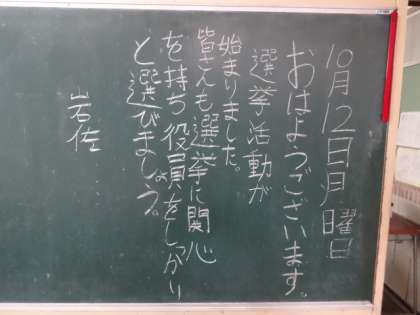 10月12日月曜日
おはようございます。
選挙活動が
始まりました。
皆さんも選挙に関心
を持ち役員をしっかり
と選びましょう。
岩佐